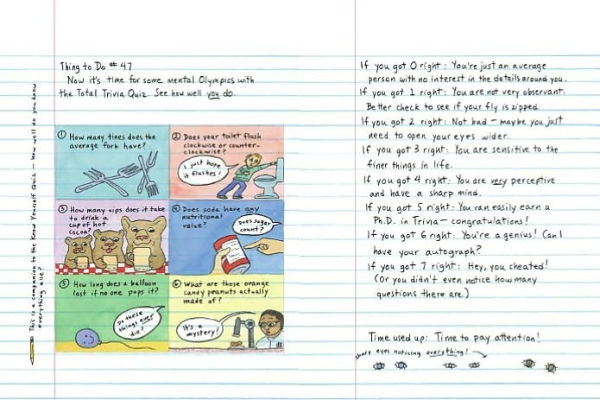 Thing to Do # 47
Now it's time for some mental Olympics with
the Total Trivia Quiz. See how well you do.
① How many tines does the
average fork have?
② Does your toilet flush
clockwise or counter-
clockwise?
I just hope
it flushes!
③ How many sips does it take
to drink a
cup of hot
cocoa?
④ Does soda have any
nutritional
value?
Does sugar
count?
⑤ How long does a balloon
last if no one pops it?
Do these
things ever
die?
⑥ What are those orange
candy peanuts actually
made of?
It's a
mystery!
This is a companion to the Know Yourself Quiz — how well do you know
everything else?
If you got 0 right: You're just an average
person with no interest in the details around you.
If you got 1 right: You are not very observant.
Better check to see if your fly is zipped.
If you got 2 right: Not bad — maybe you just
need to open your eyes wider.
If you got 3 right: You are sensitive to the
finer things in life.
If you got 4 right: You are very perceptive
and have a sharp mind.
If you got 5 right: You can easily earn a
Ph.D. in Trivia — congratulations!
If you got 6 right: You're a genius! Can I
have your autograph?
If you got 7 right: Hey, you cheated!
(Or you didn't even notice how many
questions there are.)
Time used up: Time to pay attention!
eyes noticing everything!